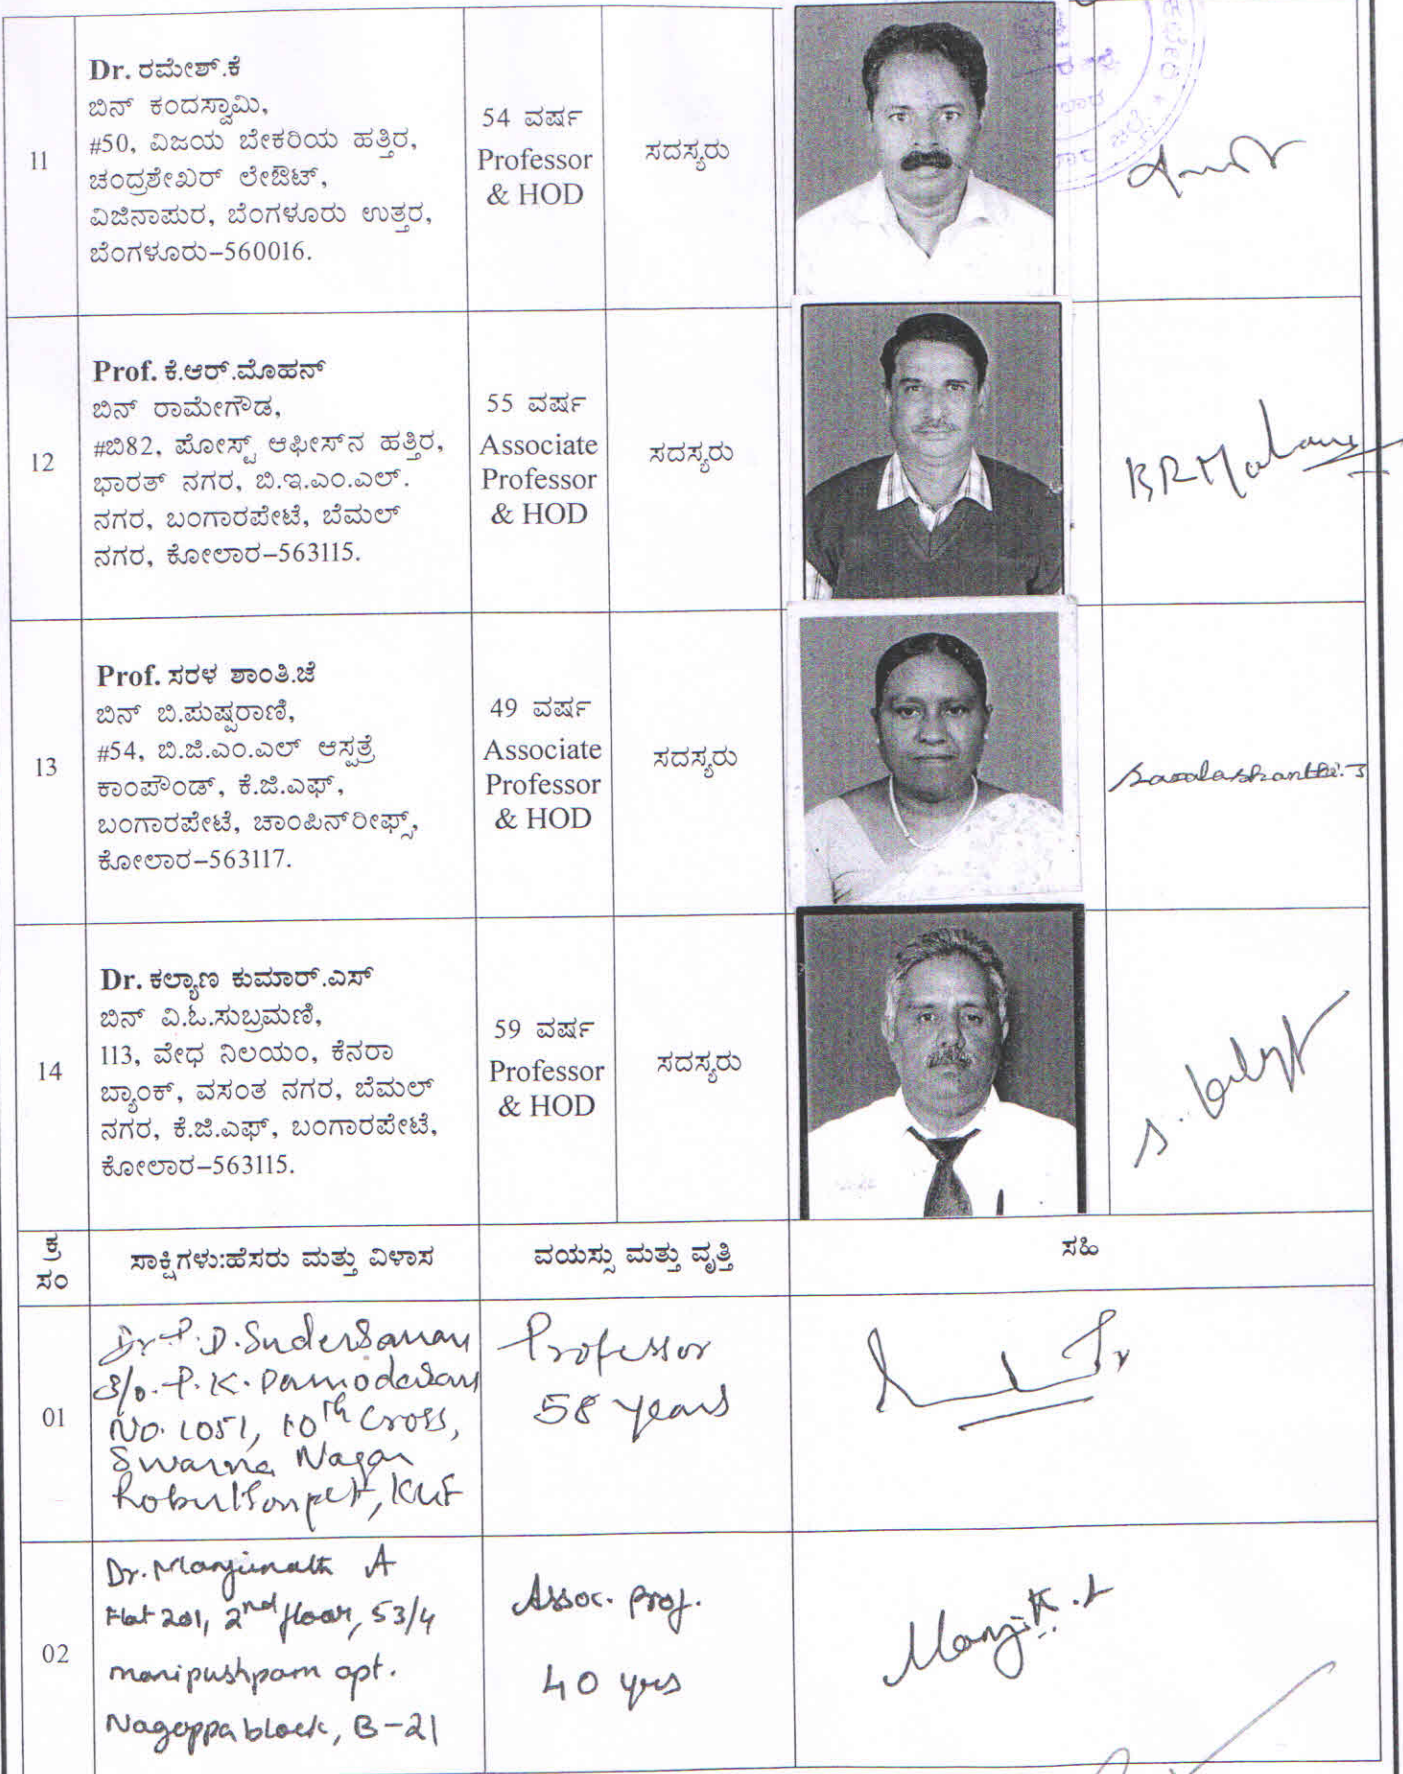 11
Dr. ರಮೇಶ್.ಕೆ
ಬಿನ್ ಕಂದಸ್ವಾಮಿ,
#50, ವಿಜಯ ಬೇಕರಿಯ ಹತ್ತಿರ,
ಚಂದ್ರಶೇಖರ್ ಲೇಔಟ್,
ವಿಜಿನಾಪುರ, ಬೆಂಗಳೂರು ಉತ್ತರ,
ಬೆಂಗಳೂರು–560016.
54 ವರ್ಷ
Professor
& HOD
ಸದಸ್ಯರು
12
Prof. ಕೆ.ಆರ್.ಮೊಹನ್
ಬಿನ್ ರಾಮೇಗೌಡ,
#ಬಿ82, ಪೋಸ್ಟ್ ಆಫೀಸ್‌ನ ಹತ್ತಿರ,
ಭಾರತ್ ನಗರ, ಬಿ.ಇ.ಎಂ.ಎಲ್.
ನಗರ, ಬಂಗಾರಪೇಟೆ, ಬೆಮಲ್
ನಗರ, ಕೋಲಾರ–563115.
55 ವರ್ಷ
Associate
Professor
& HOD
ಸದಸ್ಯರು
13
Prof. ಸರಳ ಶಾಂತಿ.ಜೆ
ಬಿನ್ ಬಿ.ಪುಷ್ಪರಾಣಿ,
#54, ಬಿ.ಜಿ.ಎಂ.ಎಲ್ ಆಸ್ಪತ್ರೆ
ಕಾಂಪೌಂಡ್, ಕೆ.ಜಿ.ಎಫ್,
ಬಂಗಾರಪೇಟೆ, ಚಾಂಪಿನ್‌ರೀಫ್ಸ್,
ಕೋಲಾರ–563117.
49 ವರ್ಷ
Associate
Professor
& HOD
ಸದಸ್ಯರು
Saralashanthi.J
14
Dr. ಕಲ್ಯಾಣ ಕುಮಾರ್.ಎಸ್
ಬಿನ್ ವಿ.ಓ.ಸುಬ್ರಮಣಿ,
113, ವೇಧ ನಿಲಯಂ, ಕೆನರಾ
ಬ್ಯಾಂಕ್, ವಸಂತ ನಗರ, ಬೆಮಲ್
ನಗರ, ಕೆ.ಜಿ.ಎಫ್, ಬಂಗಾರಪೇಟೆ,
ಕೋಲಾರ–563115.
59 ವರ್ಷ
Professor
& HOD
ಸದಸ್ಯರು
ಕ್ರ
ಸಂ
ಸಾಕ್ಷಿಗಳು:ಹೆಸರು ಮತ್ತು ವಿಳಾಸ
ವಯಸ್ಸು ಮತ್ತು ವೃತ್ತಿ
ಸಹಿ
01
Dr. P. D. Sudersanan
S/o. P. K. Damodaran
No. 1051, 10th Cross,
Swarna Nagar
Robertsonpet, KGF
Professor
58 years
02
Dr. Manjunath A
Flat 201, 2nd floor, 53/4
manipushpam apt.
Nagappa block, B-21
Assoc. prof.
40 yrs